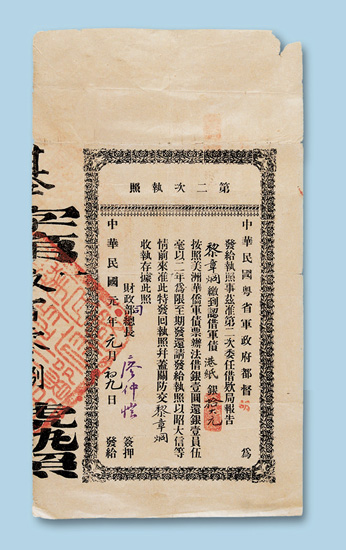 第二次執照
中華民國粵省軍政府都督 為
發給執照事茲准第二次委任借欵局報告
黎章炯繳到認借軍債港紙銀拾大元
按照美洲華僑軍債票辦法借銀壹圓還銀壹員伍
毫以一年為限至期發還請發給執照以昭大信等
情前來准此特發回執照幷蓋關防交黎章炯
收執存據此照
財政部總長廖仲愷簽押
中華民國元年元月初九日發給